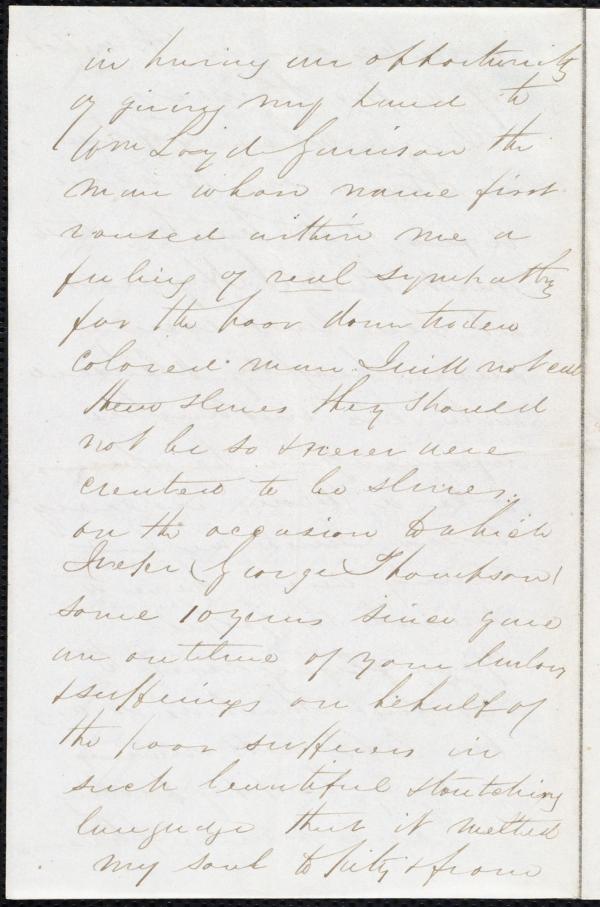 in having an opportunity
of giving my hand to
Wm Loyd Garrison the
man whose name first
roused within me a
feeling of real sympathy
for the poor down troden
colored man. I will not call
them slaves they should
not be so & never were
created to be slaves.
on the occasion to which
I refer (George Thompson)
some 10 years since gave
an outline of your labors
& sufferings on behalf of
the poor sufferers in
such beautiful & touching
language that it melted
my soul to pity & from